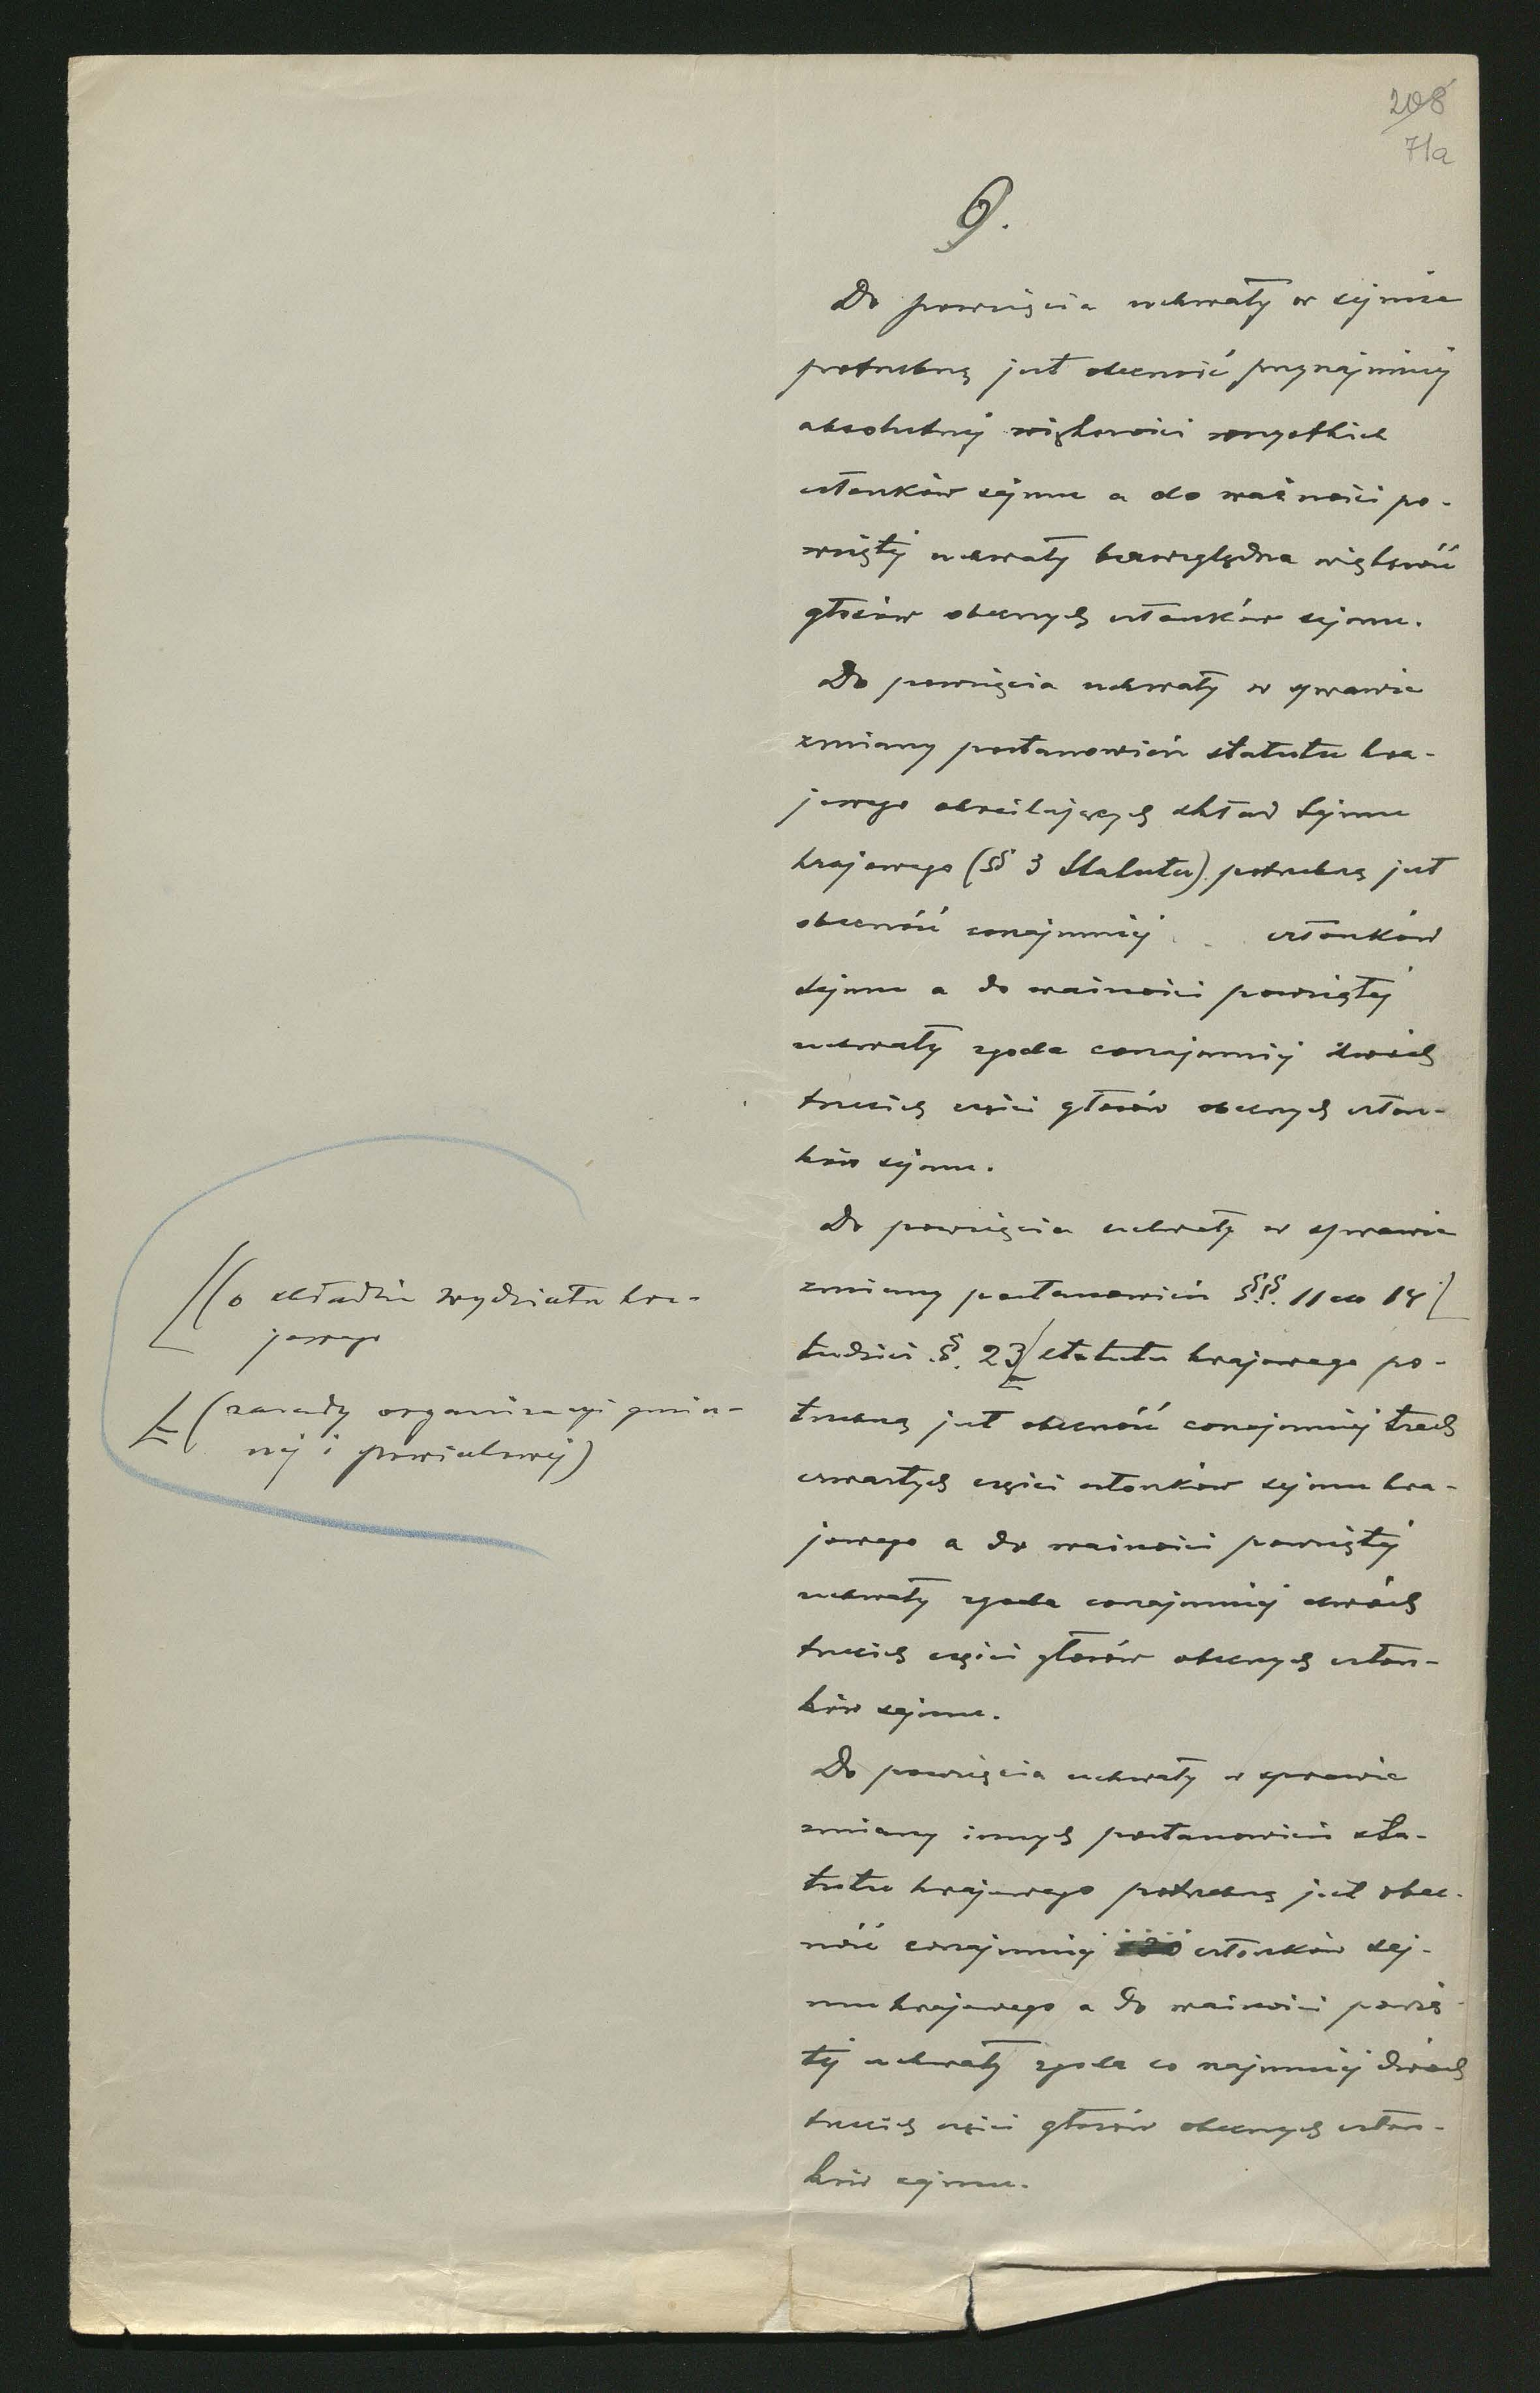 208
71a
9.
Do powzięcia uchwały w sejmie
potrzebną jest obecność przynajmniej
absolutnej większości wszystkich
członków sejmu a do ważności po-
wziętej uchwały bezwzględna większość
głosów obecnych członków sejmu.
Do powzięcia uchwały w sprawie
zmiany postanowień statutu kra-
jowego określających skład Sejmu
krajowego (§§ 3 Statutu) potrzebną jest
obecność conajmniej . . członków
Sejmu a do ważności powziętej
uchwały zgoda conajmniej dwóch
trzecich części głosów obecnych człon-
ków sejmu.
Do powzięcia uchwały w sprawie
zmiany postanowień §§. 11 do 14 [
tudzież §. 23 [ statutu krajowego po-
trzebną jest obecność conajmniej trzech
czwartych części członków sejmu kra-
jowego a do ważności powziętej
uchwały zgoda conajmniej dwóch
trzecich części głosów obecnych człon-
ków sejmu.
Do powzięcia uchwały w sprawie
zmiany innych postanowień sta-
tutu krajowego potrzebną jest obec-
ność conajmniej .... członków sej-
mu krajowego a do ważności powzię-
tej uchwały zgoda co najmniej dwóch
trzecich części głosów obecnych człon-
ków sejmu.
[(o składzie wydziału kra-
jowego
[(zasady organizacyi gmin-
nej i powiatowej)